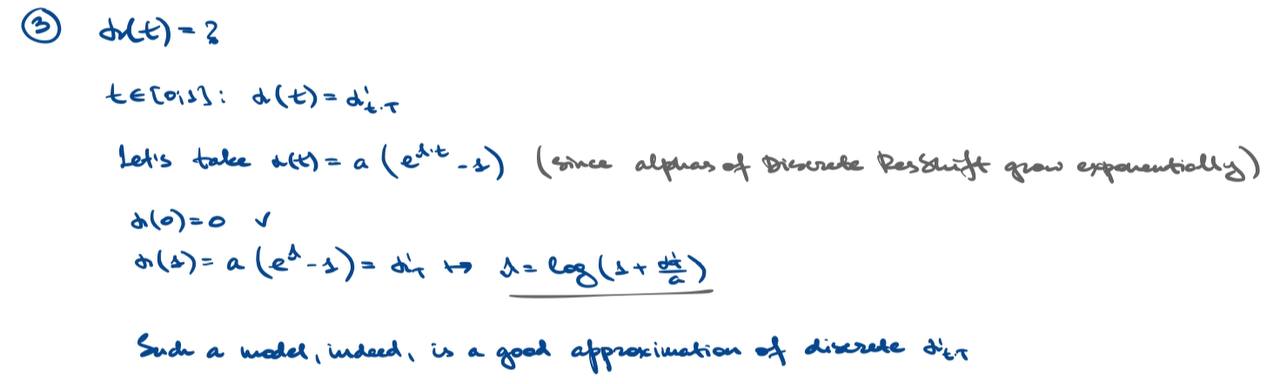 ③ α(t) = ?
t ∈ [0;1]: α(t) = α'_{t·T}
Let's take α(t) = a (e^{λ·t} - 1) (since alphas of Discrete ResShift grow exponentially)
α(0) = 0 ✓
α(1) = a (e^λ - 1) = α'_T ↦ λ = log(1 + α'_T/a)
Such a model, indeed, is a good approximation of discrete α'_{tT}